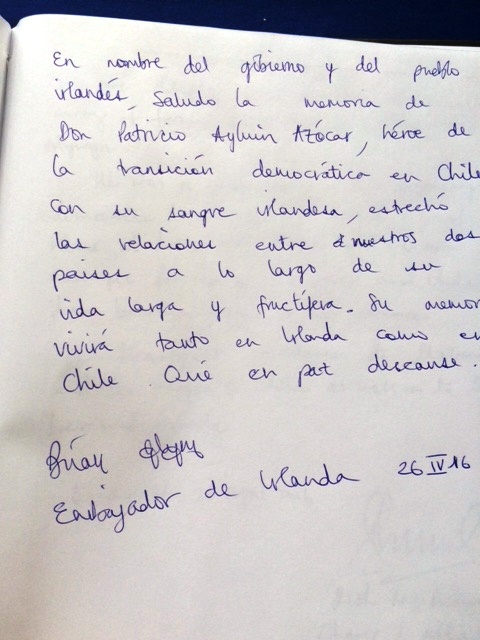 En nombre del gobierno y del pueblo
irlandés, saludo la memoria de
Don Patricio Aylwin Azócar, héroe de
la transición democrática en Chile
Con su sangre irlandesa, estrechó
las relaciones entre nuestros dos
países a lo largo de su
vida larga y fructífera. Su memor
vivirá tanto en Irlanda como en
Chile. Qué en paz descanse.
Brían
Embajador de Irlanda 26 IV 16